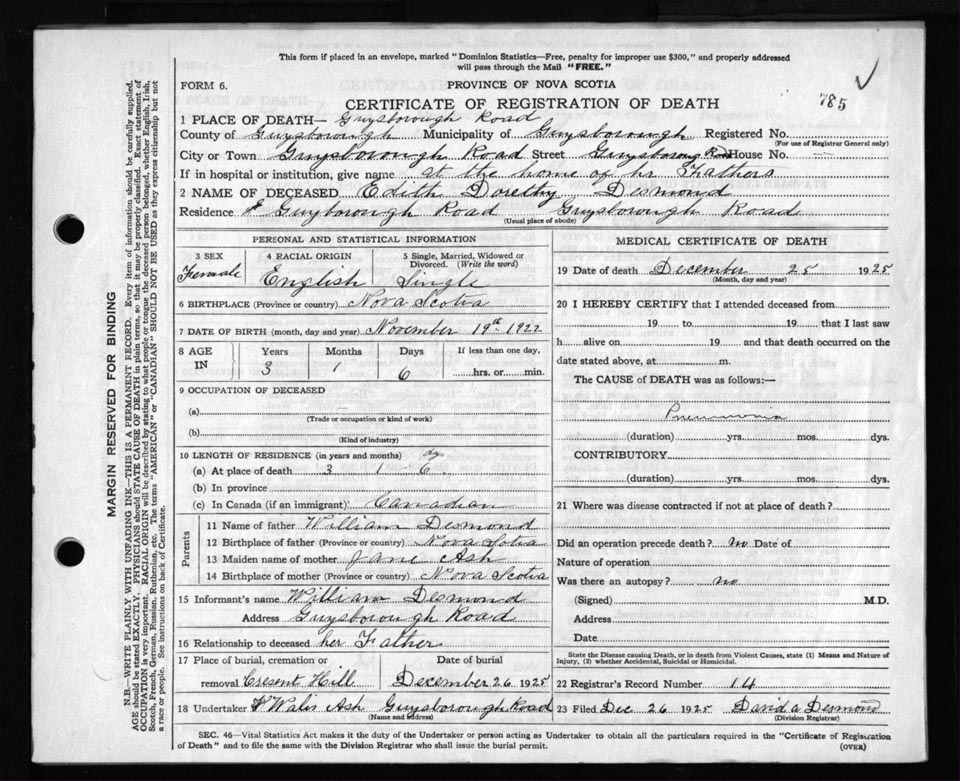 This form if placed in an envelope, marked "Dominion Statistics—Free, penalty for improper use $300," and properly addressed
will pass through the Mail "FREE."
FORM 6. PROVINCE OF NOVA SCOTIA
CERTIFICATE OF REGISTRATION OF DEATH 785
1 PLACE OF DEATH— Guysborough Road
County of Guysborough Municipality of Guysborough Registered No.
(For use of Registrar General only)
City or Town Guysborough Road Street Guysborough Rd House No. —
If in hospital or institution, give name at the home of hr Fathers
2 NAME OF DECEASED Edith Dorethy Desmond
Residence Guyborough Road Guysborough Road
(Usual place of abode)
PERSONAL AND STATISTICAL INFORMATION
3 SEX Female
4 RACIAL ORIGIN English
5 Single, Married, Widowed or Divorced. (Write the word) Single
6 BIRTHPLACE (Province or country) Nova Scotia
7 DATE OF BIRTH (month, day and year) November 19th 1922
8 AGE IN Years 3 Months 1 Days 6 If less than one day, hrs. or min.
9 OCCUPATION OF DECEASED
(a)
(Trade or occupation or kind of work)
(b)
(Kind of industry)
10 LENGTH OF RESIDENCE (in years and months) dys
(a) At place of death 3 1 6
(b) In province
(c) In Canada (if an immigrant) Canadian
Parents
11 Name of father William Desmond
12 Birthplace of father (Province or country) Nova Sotia
13 Maiden name of mother Jane Ash
14 Birthplace of mother (Province or country) Nova Scotia
15 Informant's name William Desmond
Address Guysborough Road
16 Relationship to deceased her Father
17 Place of burial, cremation or removal Cresent Hill
Date of burial December 26 1925
18 Undertaker Walis Ash Guysborough Road
(Name and address)
MEDICAL CERTIFICATE OF DEATH
19 Date of death December 25 1925
(Month, day and year)
20 I HEREBY CERTIFY that I attended deceased from
19 to 19 that I last saw
h alive on 19 and that death occurred on the
date stated above, at m.
The CAUSE of DEATH was as follows:—
Pneumonia
(duration) yrs. mos. dys.
CONTRIBUTORY
(duration) yrs. mos. dys.
21 Where was disease contracted if not at place of death?
Did an operation precede death? no Date of
Nature of operation
Was there an autopsy? no
(Signed) M.D.
Address
Date
State the Disease causing Death, or in death from Violent Causes, state (1) Means and Nature of
Injury, (2) whether Accidental, Suicidal or Homicidal.
22 Registrar's Record Number 14
23 Filed Dec 26 1925 David A Desmond
(Division Registrar)
SEC. 46—Vital Statistics Act makes it the duty of the Undertaker or person acting as Undertaker to obtain all the particulars required in the "Certificate of Registration
of Death" and to file the same with the Division Registrar who shall issue the burial permit. (OVER)
MARGIN RESERVED FOR BINDING
N.B.—WRITE PLAINLY WITH UNFADING INK—THIS IS A PERMANENT RECORD. Every item of information should be carefully supplied.
AGE should be stated EXACTLY. PHYSICIANS should STATE CAUSE OF DEATH in plain terms, so that it may be properly classified. Exact statement of
OCCUPATION is very important. RACIAL ORIGIN will be described by stating to what people or tongue the deceased person belonged, whether English, Irish,
Scotch, French, German, Russian, Ruthenian, etc. The terms "AMERICAN" or "CANADIAN" SHOULD NOT BE USED as they express citizenship but not
a race or people. See instructions on back of Certificate.